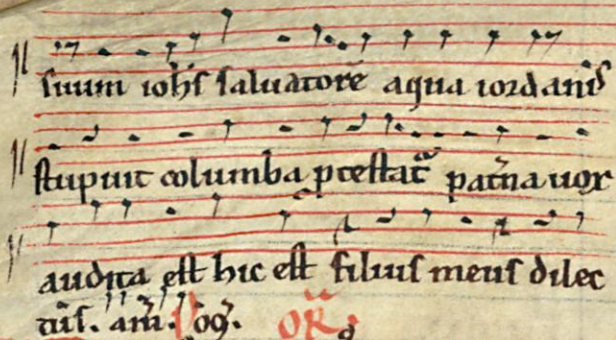 suum ioħs saluatorē aqua iordanis
stupuit columba ꝓtestat᷑ pat̾na uox
audita est hic est filius meus dilec
tus. am̅.